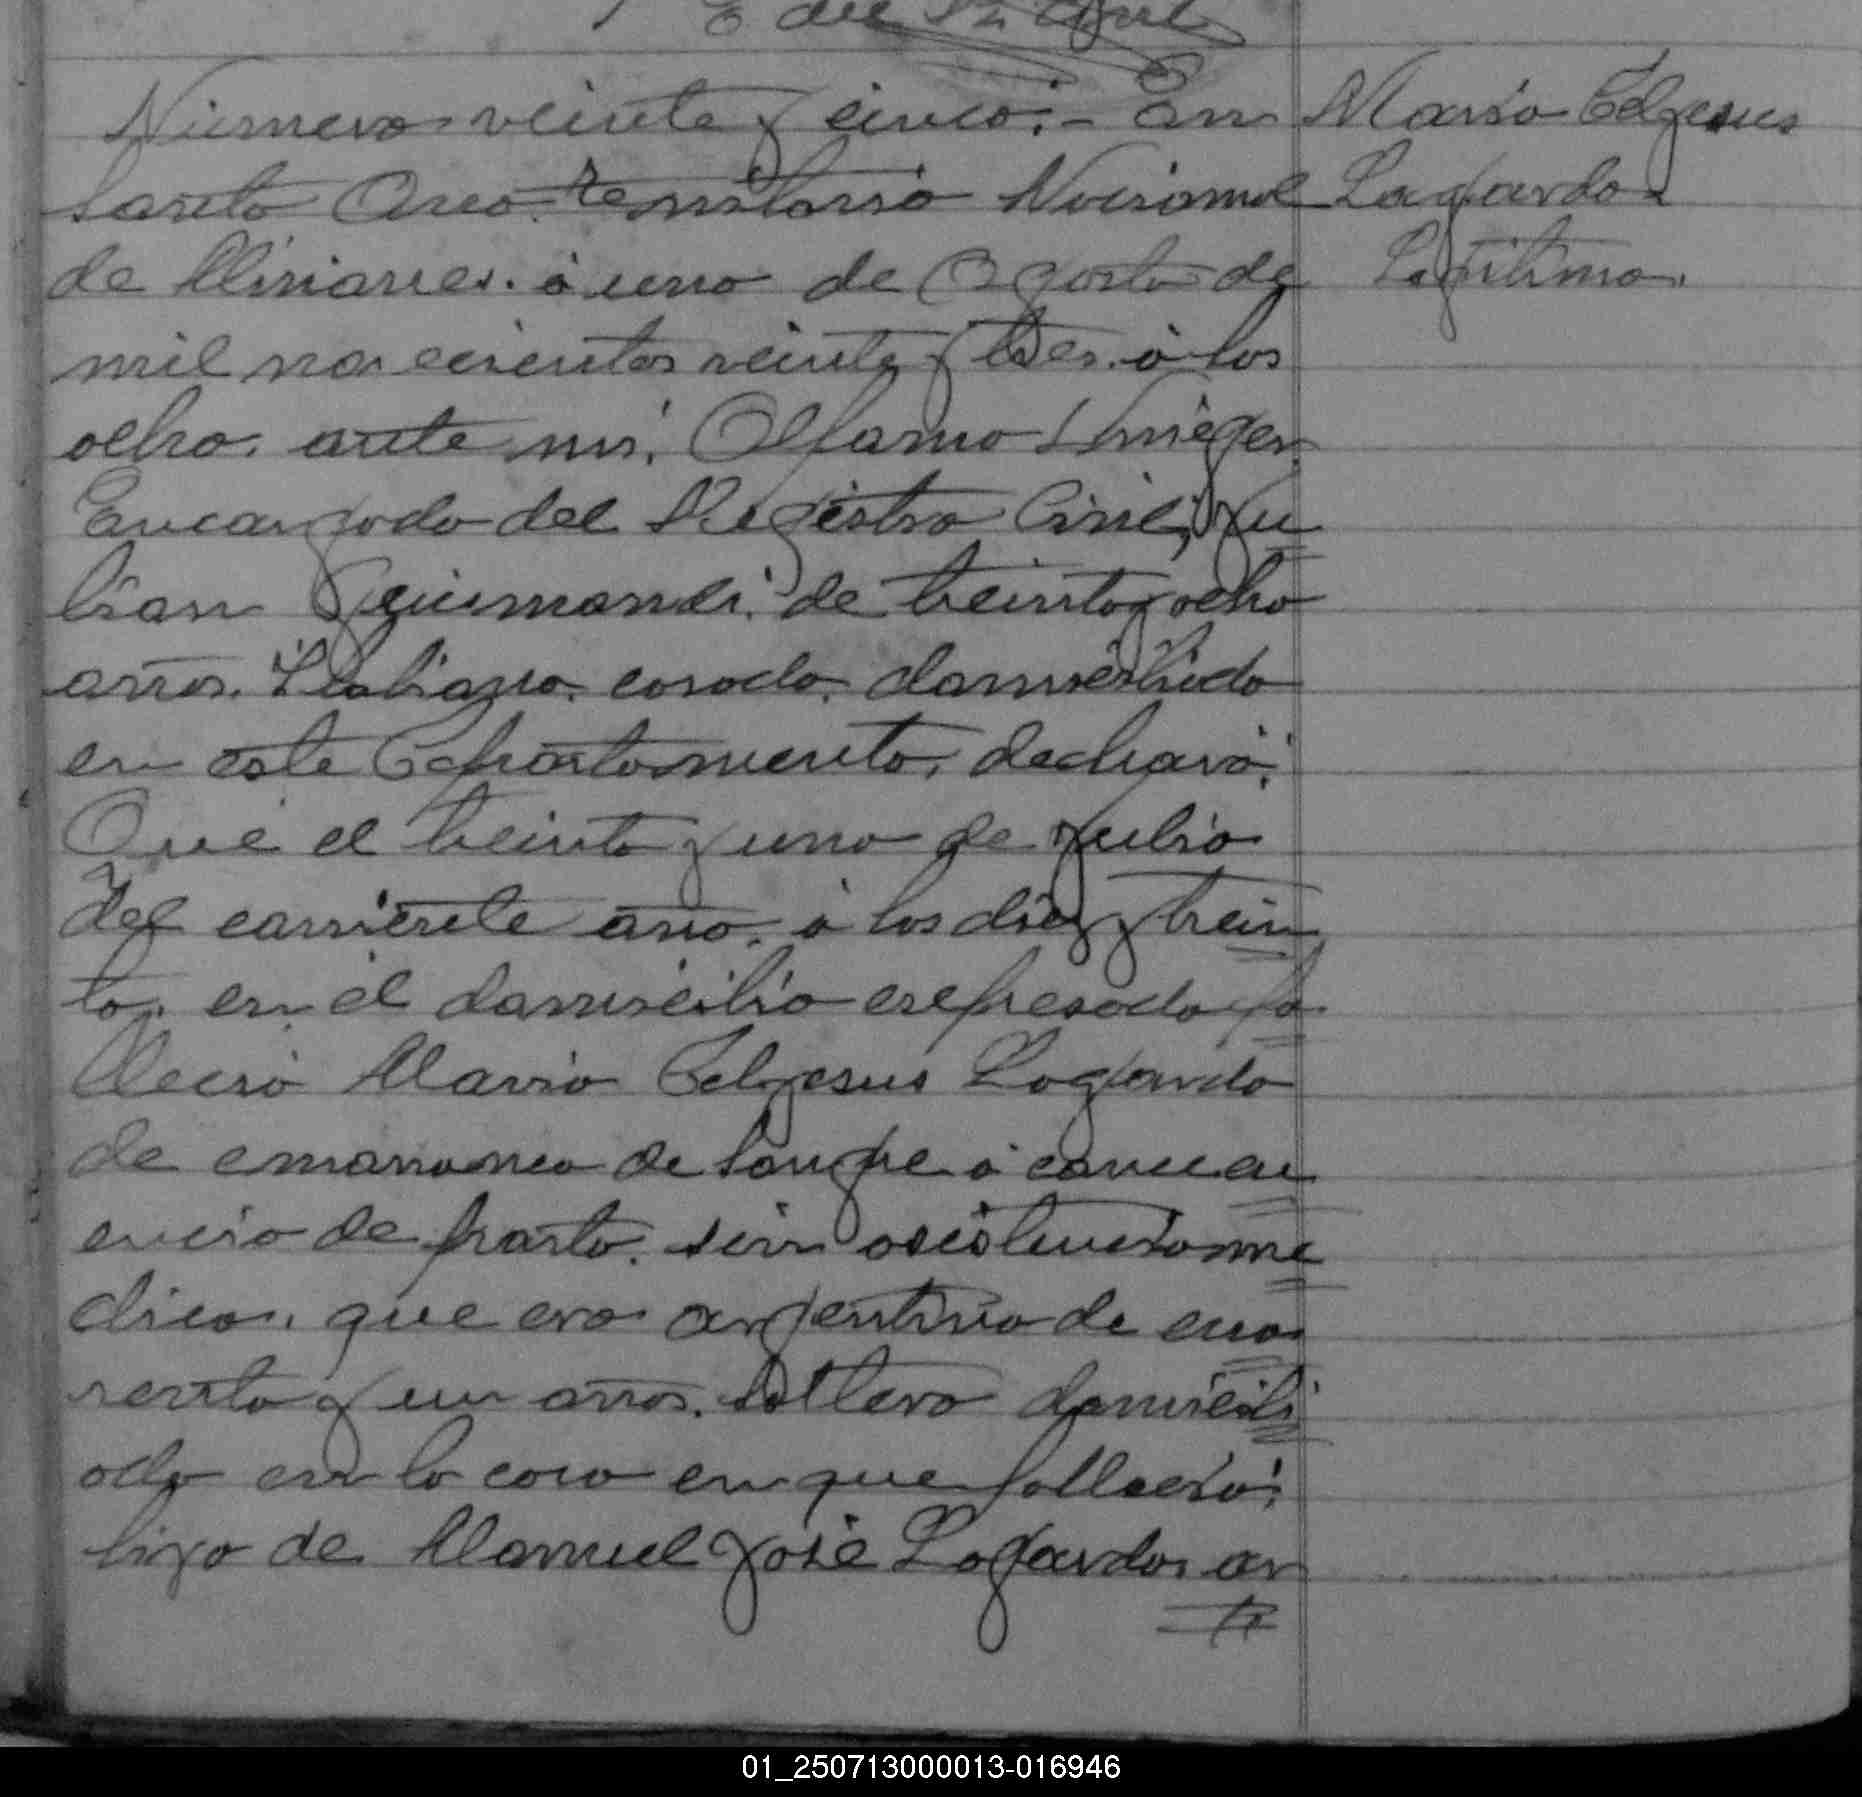 E del R. Civil
Numero veinte y cinco:- En
Santa Ana. Territorio Nacional
de Misiones. á uno de Agosto de
mil novecientos veinte y tres. á las
ocho. ante mi,
Encargado del Registro Civil, Ju
lian de treinta y ocho
años. Italiano. casado. domiciliado
en este Departamento, declaró:
Que el treinta y uno de Julio
del corriente año. á las diez y trein
ta. en el domicilio expresado fa
lleció Maria Deljesus Logardo
de emarranea de sangre á consecu
encia de parto. sin asistencia me
dica. que era argentina de cua
renta y un años. soltera domicili
ada en la casa en que falleció:
hija de Manuel José Logardo, ar
Maria Deljesus
Logardo
Legitima.
01_250713000013-016946